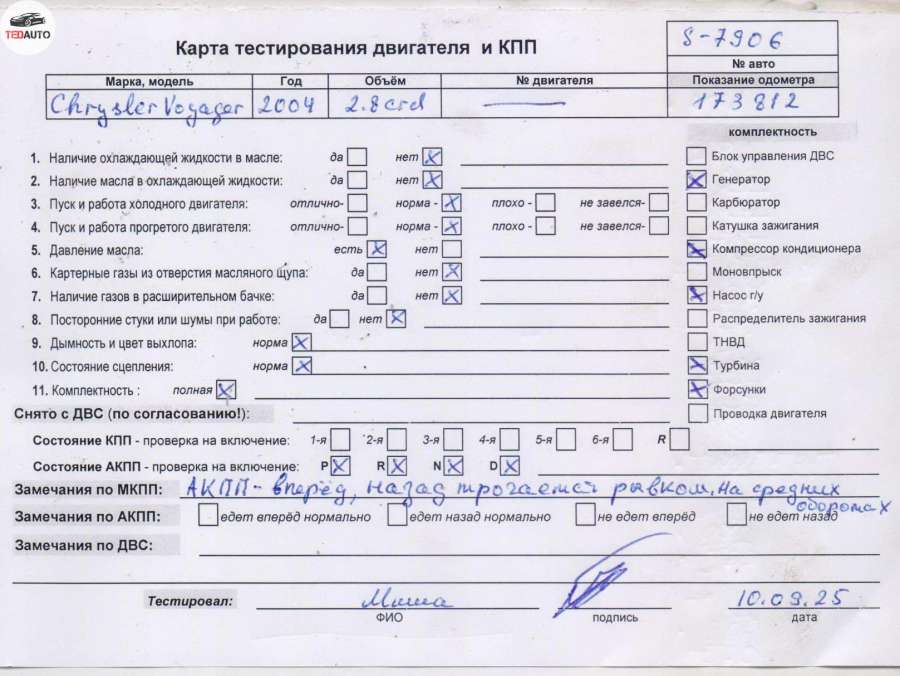 TEDAUTO
Карта тестирования двигателя и КПП
S-7906
№ авто
Марка, модель Год Объём № двигателя Показание одометра
Chrysler Voyager 2004 2.8 crd — 173812
комплектность
1. Наличие охлаждающей жидкости в масле: да нет X
2. Наличие масла в охлаждающей жидкости: да нет X
3. Пуск и работа холодного двигателя: отлично- норма - X плохо - не завелся-
4. Пуск и работа прогретого двигателя: отлично- норма - X плохо - не завелся-
5. Давление масла: есть X нет
6. Картерные газы из отверстия масляного щупа: да нет X
7. Наличие газов в расширительном бачке: да нет X
8. Посторонние стуки или шумы при работе: да нет X
9. Дымность и цвет выхлопа: норма X
10. Состояние сцепления: норма X
11. Комплектность : полная X
Блок управления ДВС
X Генератор
Карбюратор
Катушка зажигания
X Компрессор кондиционера
Моновпрыск
X Насос г/у
Распределитель зажигания
ТНВД
X Турбина
X Форсунки
Проводка двигателя
Снято с ДВС (по согласованию!):
Состояние КПП - проверка на включение: 1-я 2-я 3-я 4-я 5-я 6-я R
Состояние АКПП - проверка на включение: P X R X N X D X
Замечания по МКПП: АКПП - вперёд, назад трогается рывком. На средних
оборотах
Замечания по АКПП: едет вперёд нормально едет назад нормально не едет вперёд не едет назад
Замечания по ДВС:
Тестировал: Миша 10.09.25
ФИО подпись дата